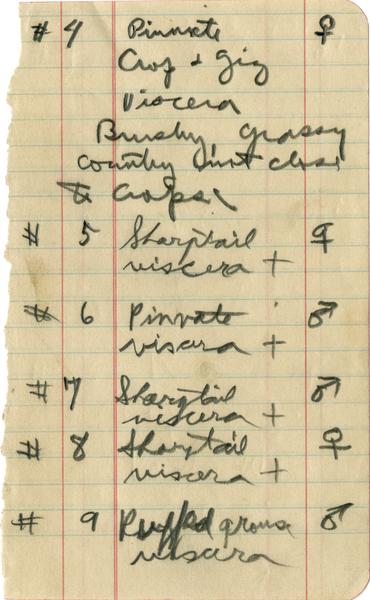 # 4 Pinnate ♀
Crop + Giz
Viscera
Brushy grassy
country but close
to crops
# 5 Sharptail ♀
viscera +
# 6 Pinnate ♂
viscera +
# 7 Sharptail ♂
viscera +
# 8 Sharptail ♀
viscera +
# 9 Ruffed grouse ♂
viscera